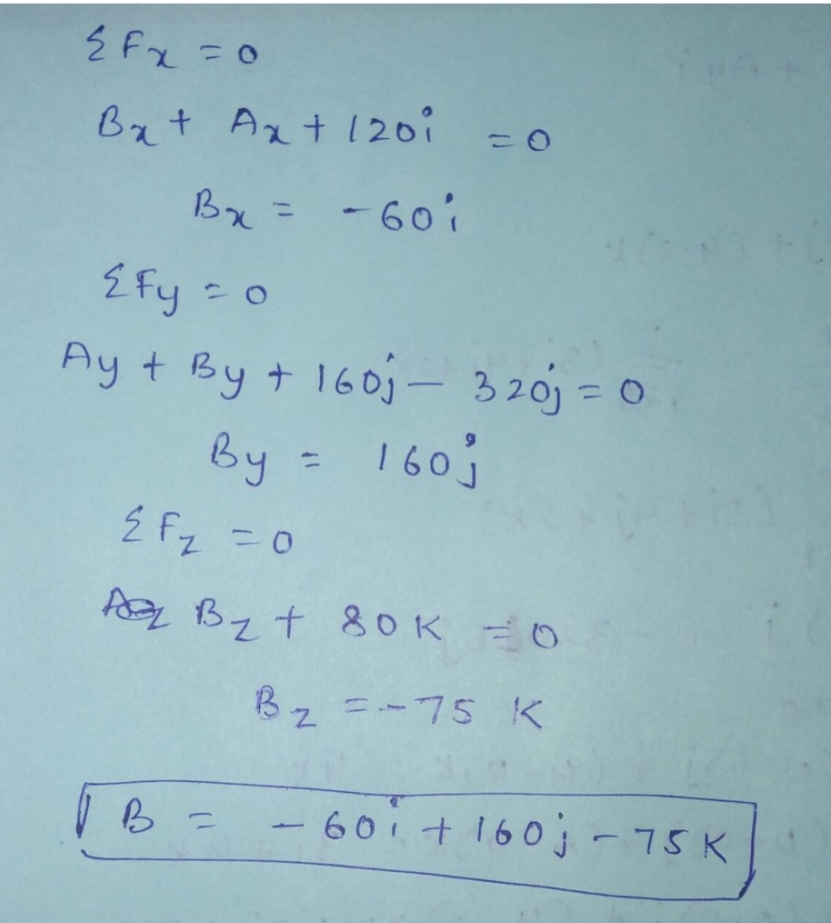 ΣFx = 0
Bx + Ax + 120i = 0
Bx = -60i
ΣFy = 0
Ay + By + 160j - 320j = 0
By = 160j
ΣFz = 0
Bz + 80K = 0
Bz = -75 K
B = -60i + 160j - 75K